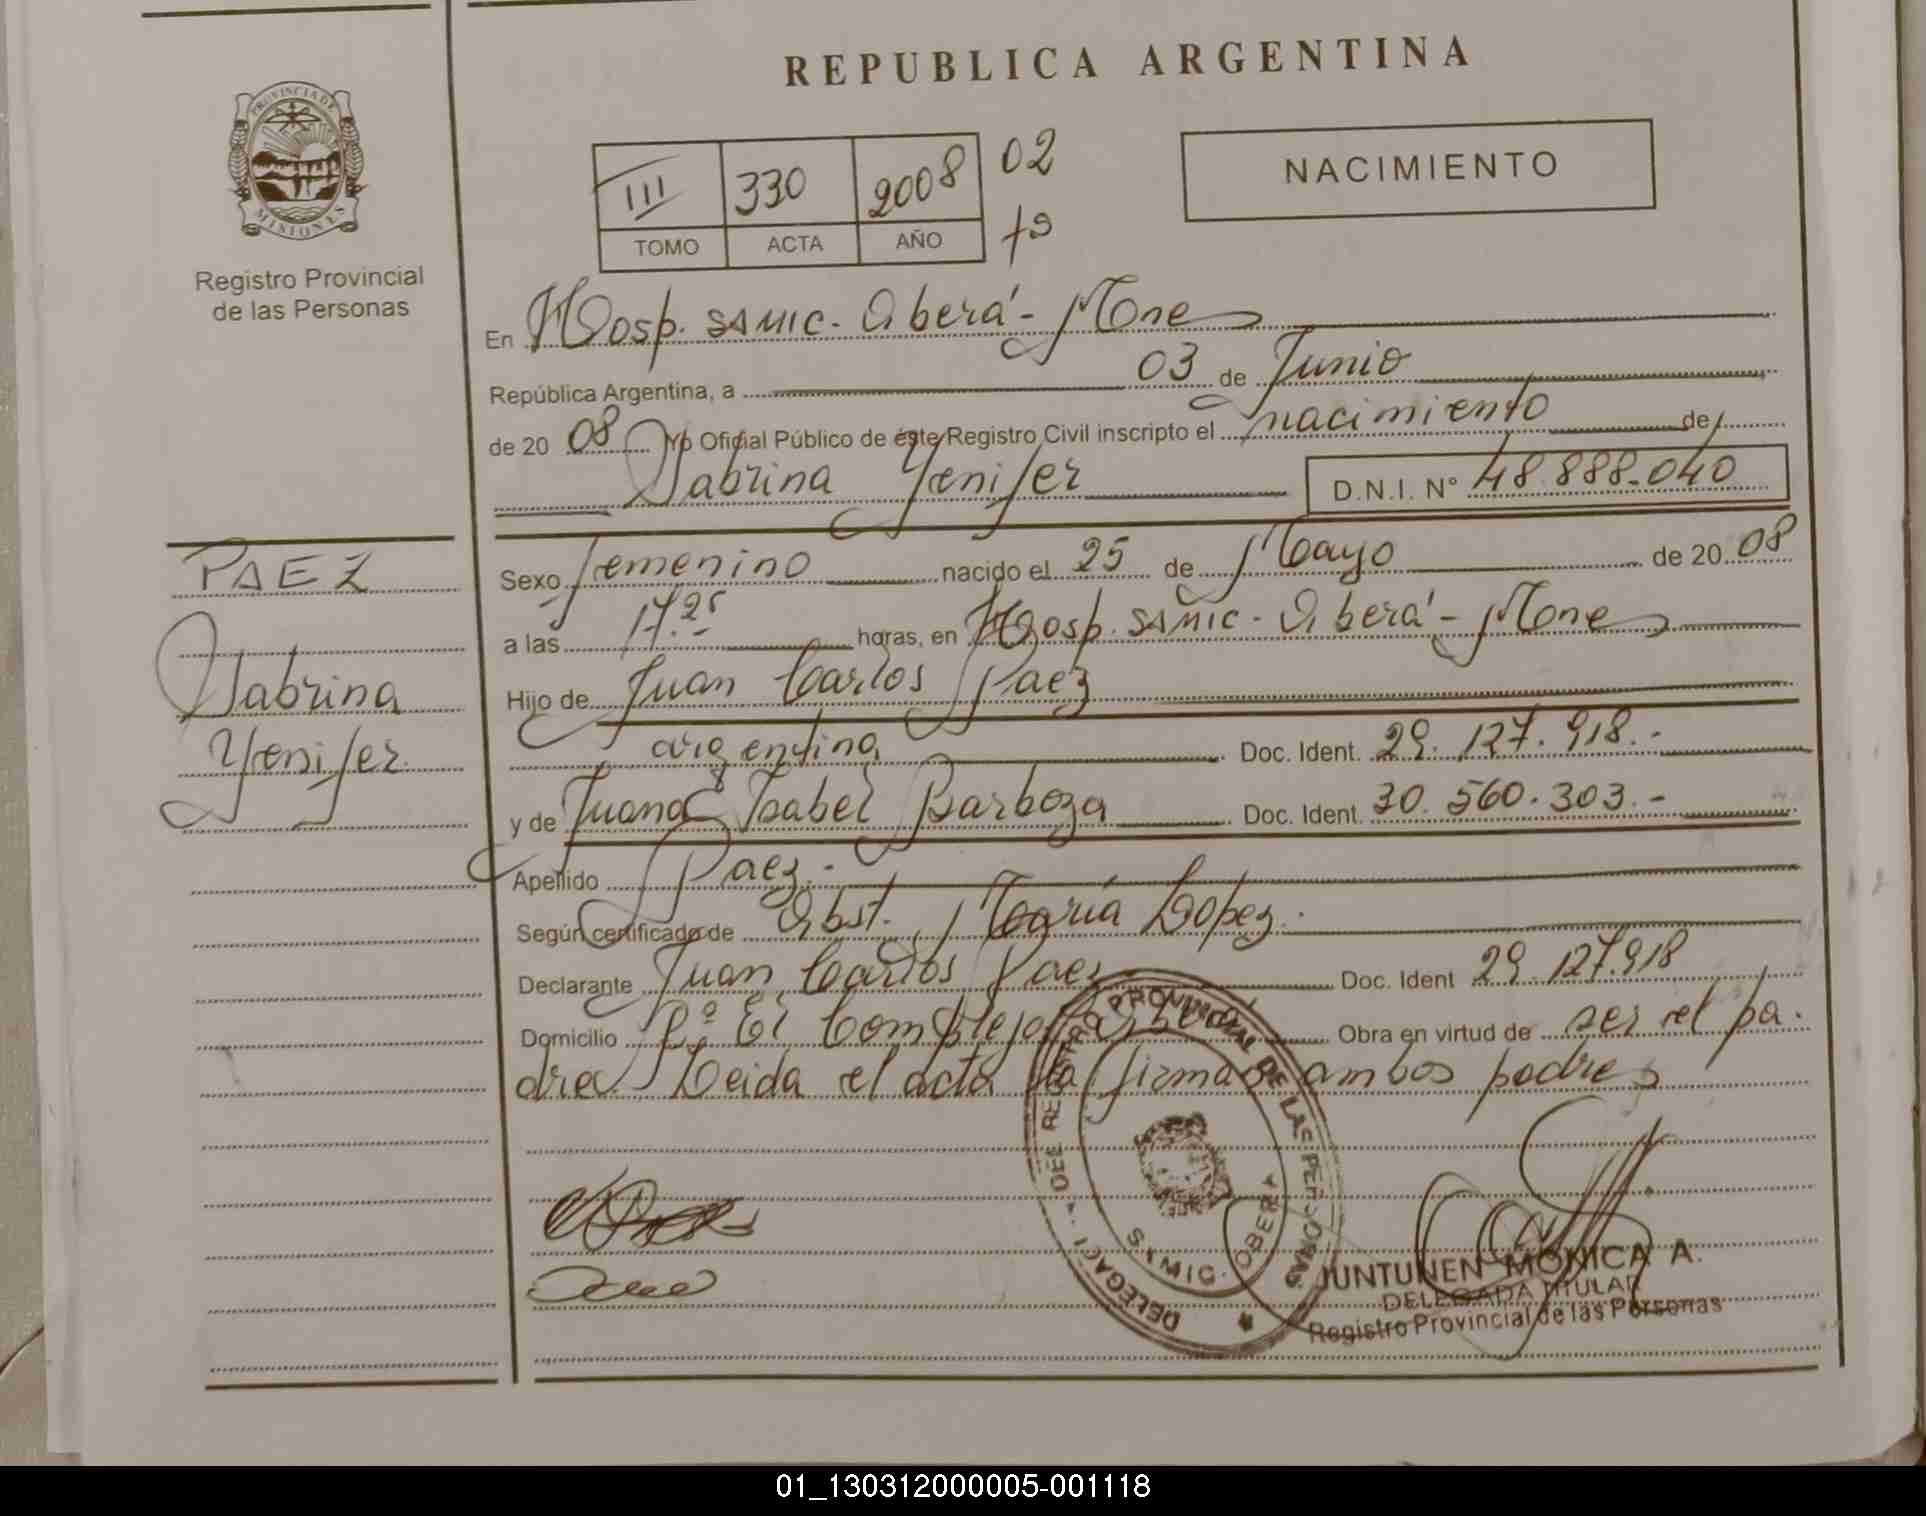 REPUBLICA ARGENTINA
PROVINCIA DE
MISIONES
Registro Provincial
de las Personas
III 330 2008 02
TOMO ACTA AÑO
NACIMIENTO
En Hosp. SAMIC - Oberá - Mnes
República Argentina, a 03 de Junio
de 20 08 Yo Oficial Público de éste Registro Civil inscripto el nacimiento de
Sabrina Yenifer D.N.I. N° 48.888.040
PAEZ
Sabrina
Yenifer
Sexo femenino nacido el 25 de Mayo de 20 08
a las 17.25 horas, en Hosp. SAMIC - Oberá - Mnes
Hijo de Juan Carlos Paez
argentina Doc. Ident. 29.127.918.-
y de Juana Isabel Barboza Doc. Ident. 30.560.303.-
Apellido Paez.-
Según certificado de Obst. María Lopez.
Declarante Juan Carlos Paez Doc. Ident 29.127.918
Domicilio Bº El Complejo Obra en virtud de ser el pa.
dre. Leida el acta la firman ambos padres
DELEGACI REGISTRO PROVINCIAL DE LAS PERSONAS
SAMIC - OBERA
JUNTUNEN MONICA A.
DELEGADA TITULAR
Registro Provincial de las Personas
01_130312000005-001118